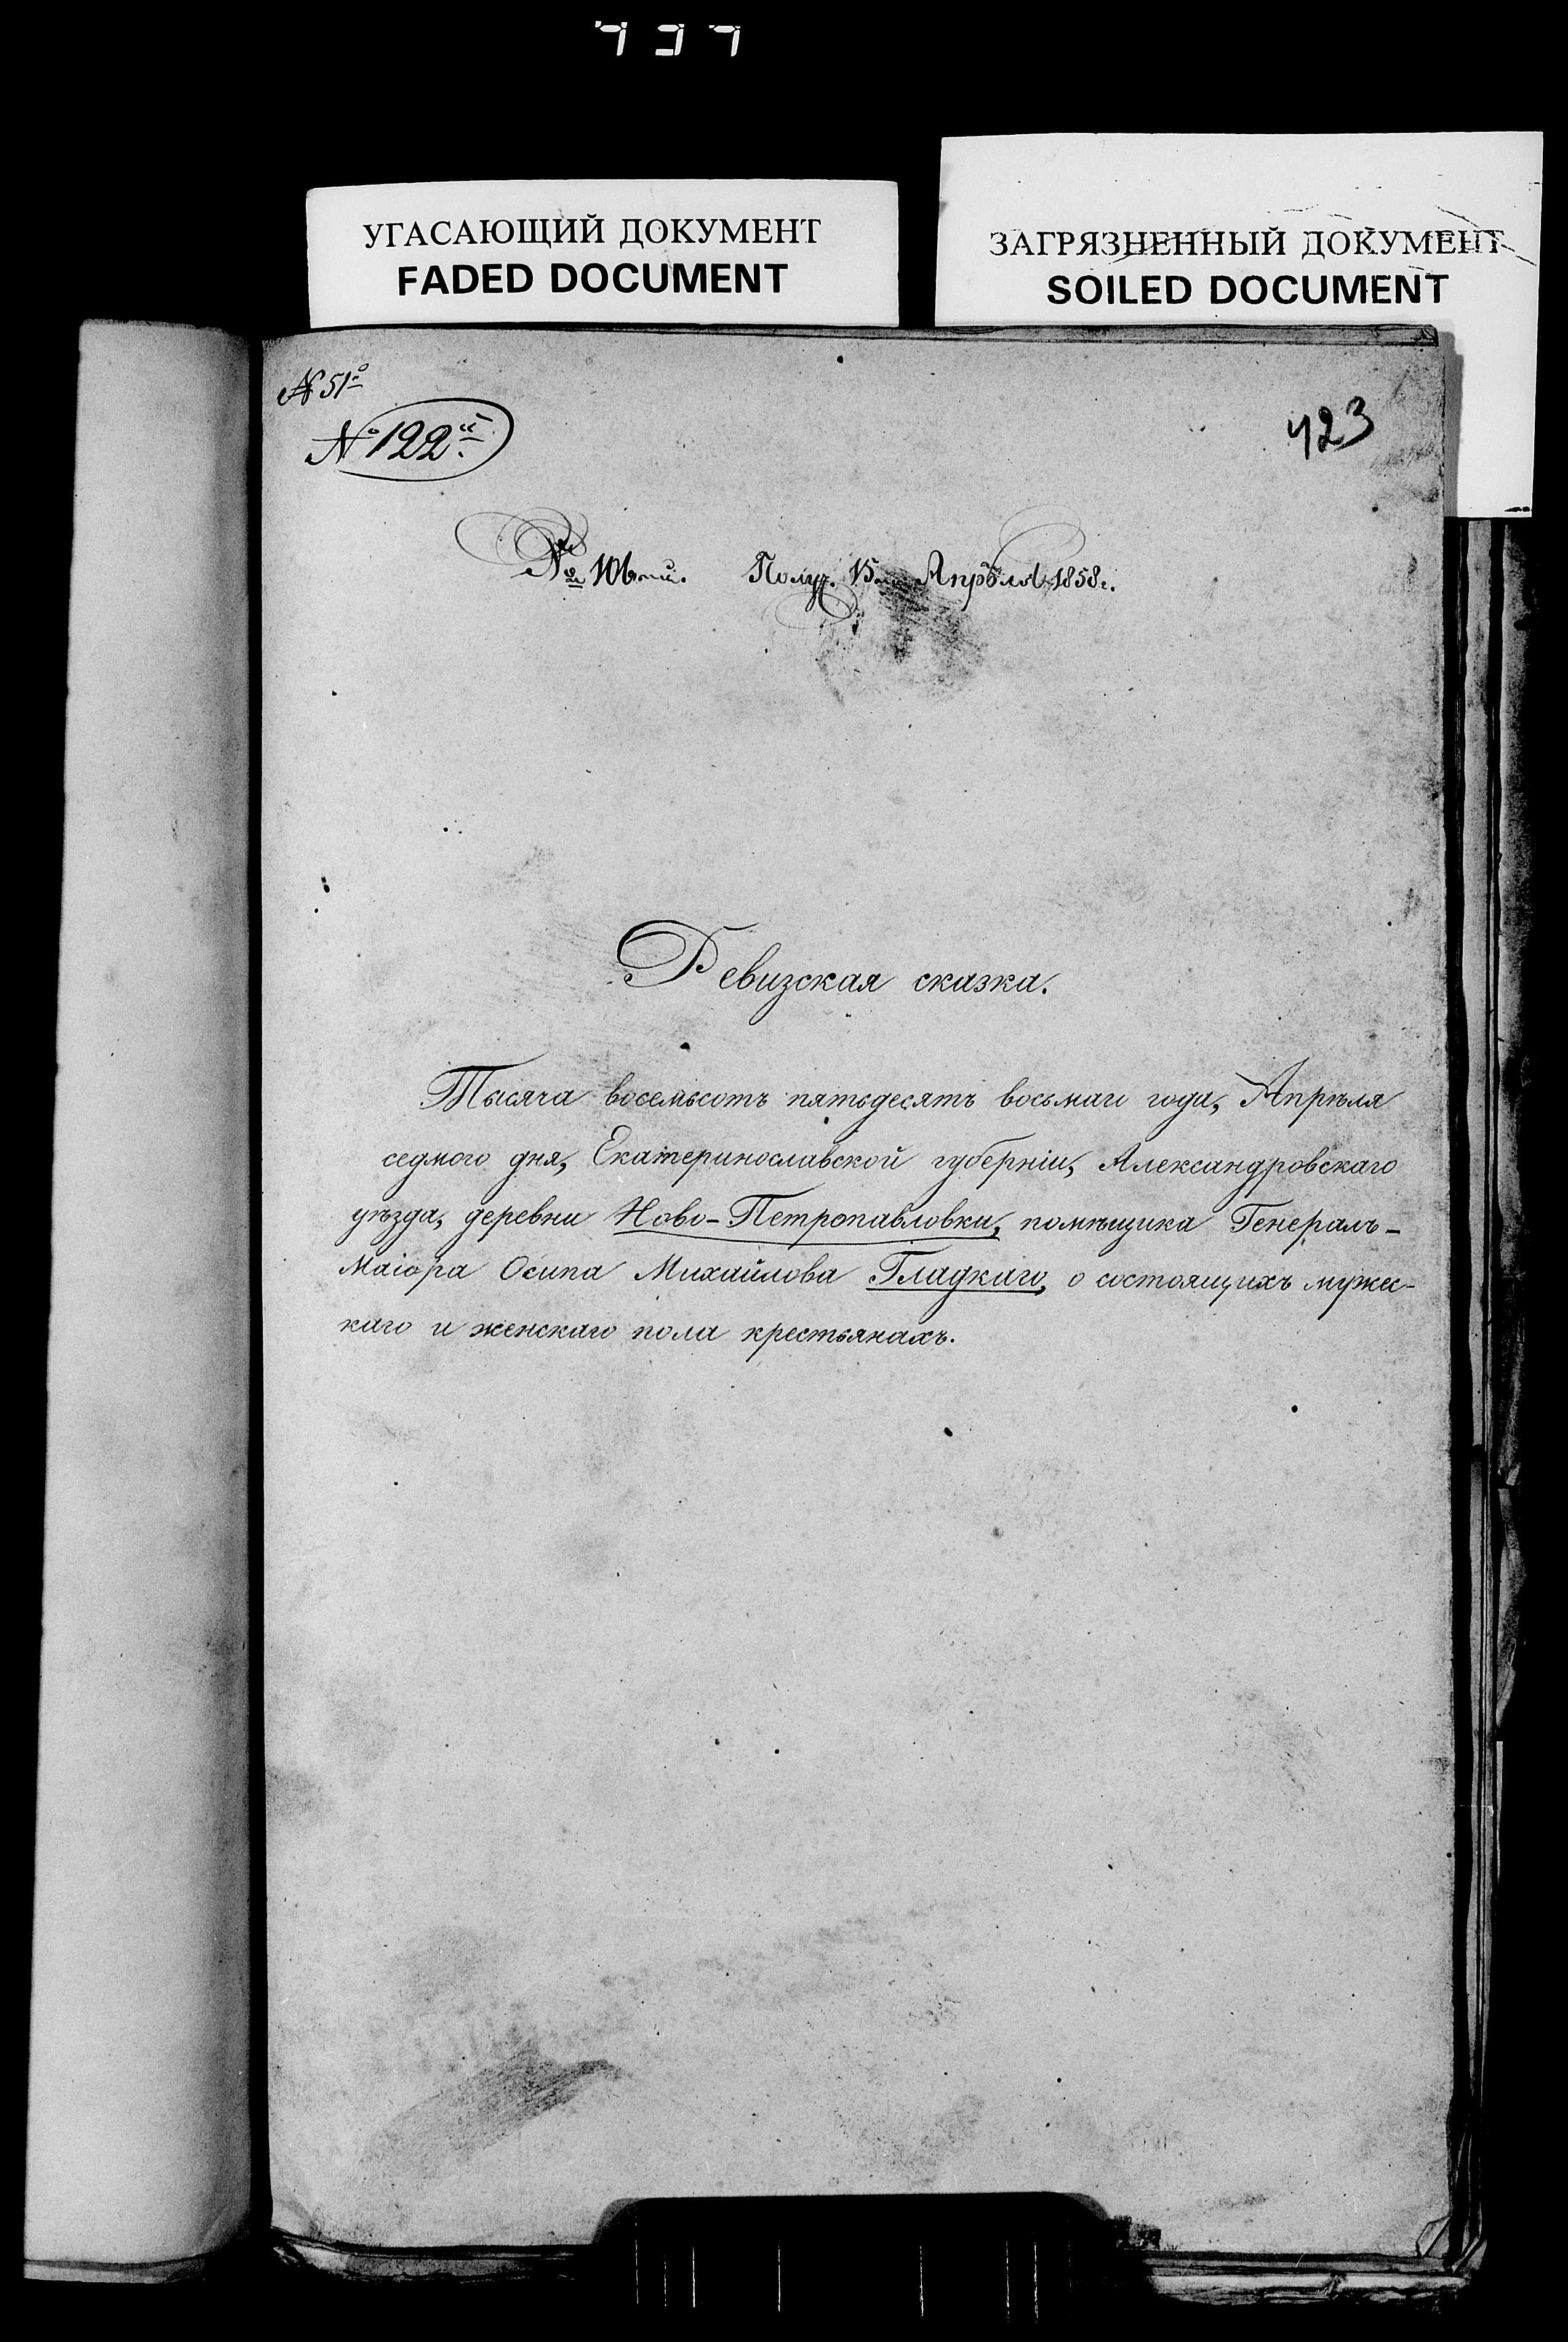 УГАСАЮЩИЙ ДОКУМЕНТ
FADED DOCUMENT
ЗАГРЯЗНЕННЫЙ ДОКУМЕНТ
SOILED DOCUMENT
№ 51й
№ 122й
423
№ 106. Получ. 15 Апрѣля 1858 г.
Ревизская сказка.
Тысяча восемьсотъ пятьдесятъ восьмаго года, Апрѣля
седмого дня, Екатеринославской губерніи, Александровскаго
уѣзда, деревни Ново-Петропавловки, помѣщика Генералъ-
Маіора Осипа Михайлова Гладкаго, о состоящихъ мужес-
каго и женскаго пола крестьянахъ.